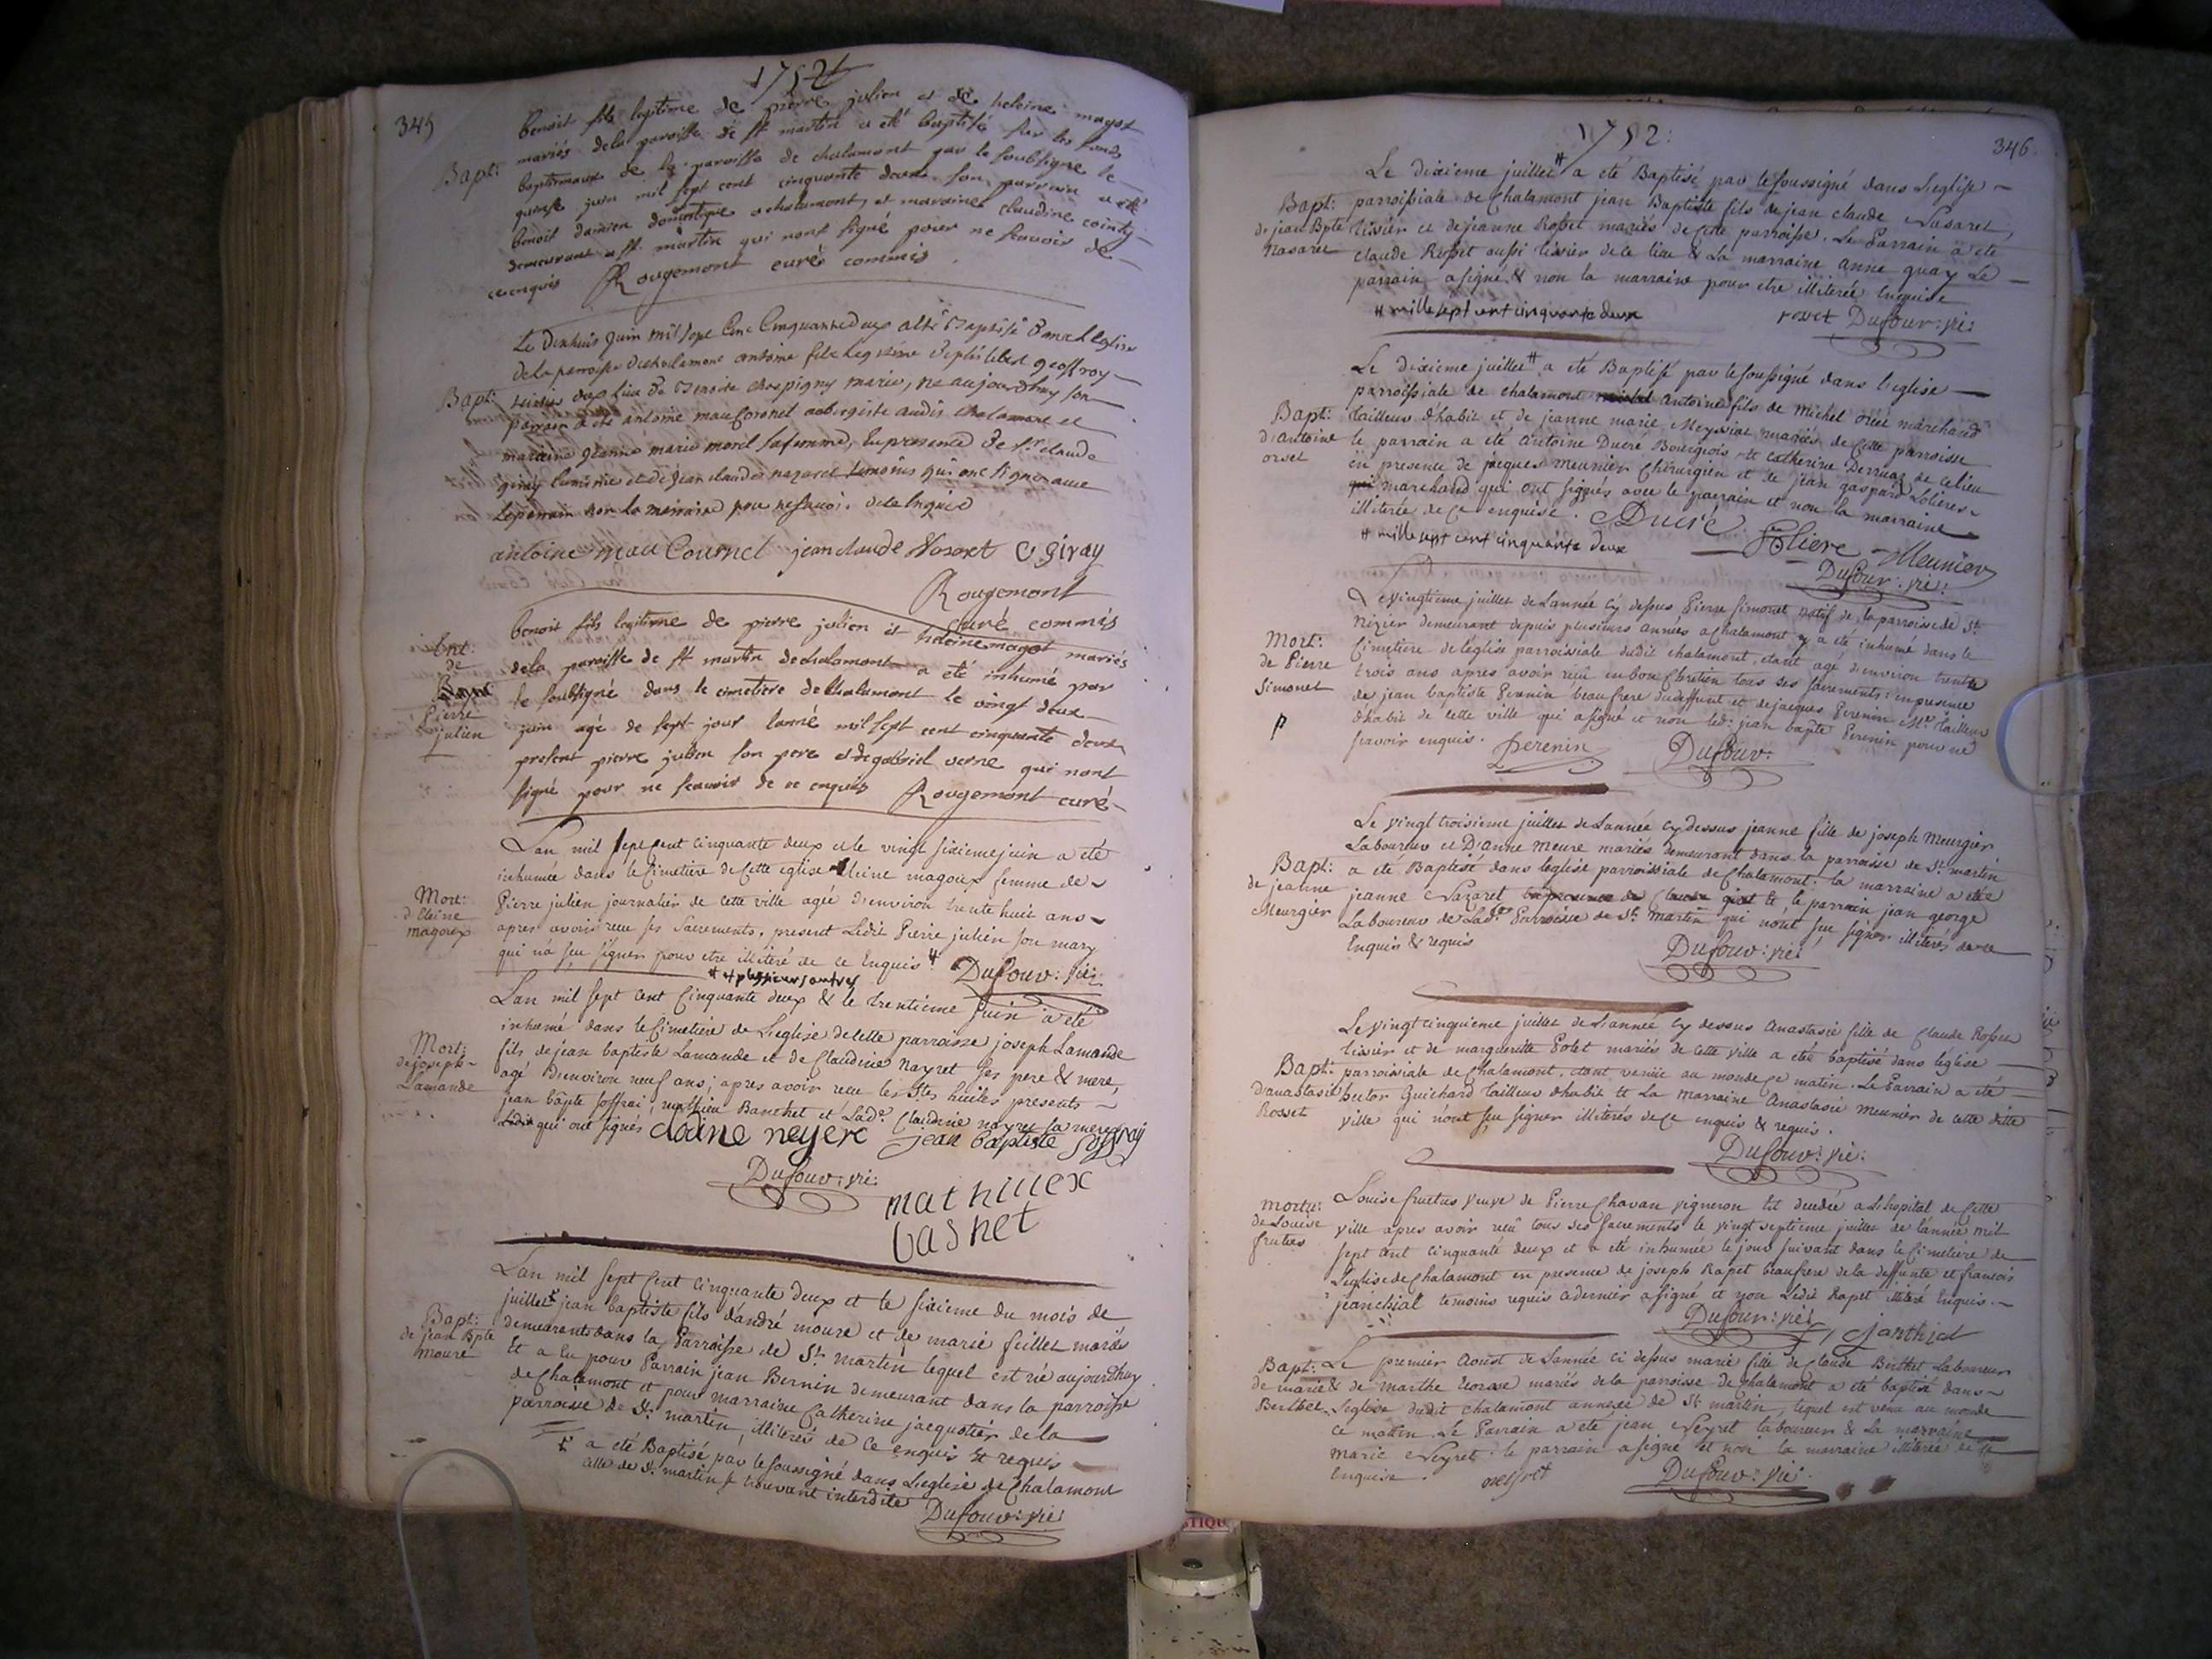 345
1752
Bapt:
benoit fils legitime de pierre julien et de heleine magot
mariés dela paroisse de st martin a eté baptisé sur les fonds
baptismaux de la paroisse de chalamont par le soubsigné le
quinse juin mil sept cent cinquante deux son parrain a eté
benoit damien domestique a chalamont, et maraine claudine cointy
demeurant a st. martin qui nont signé pour ne scavoir de
ce enquis Rougemont curé commis
Bapt:
Le dixhuit juin mil sept Cinquante deux a été Baptisé dans L'eglise
de la parroisse de chalamont antoine fils legitime geoffroy
du lieu de Benoite chaspigny mariés, né aujourdhuy son
parrain a été antoine maucoronel aubergiste audit chalamont et
maraine jeanne marie morel sa femme, En presence de sr. claude
giray et de jean claude nazaret temoins qui ont signé avec
le parrain non la marraine pour ne scavoir de ce Enquise
antoine mau Cournel jean claude Nasaret C giray
Rougemont
curé commis
Ent:
de
pierre
julien
benoit fils legitime de pierre julien et heleine magot mariés
dela paroisse de st martin de chalamont a été inhumé par
le soubsigné dans le cimetiere de Chalamont le vingt deux
juin agé de sept jour lanné mil sept cent cinquante deux
present pierre julien son pere et de gabriel verne qui nont
signé pour ne scavoir de ce enquis Rougemont curé
Mort:
d'Eleine
magoux
L'an mil sept cent cinquante deux et le vingt sixieme juin a été
inhumée dans le Cimetiere de Cette eglise Eleine magoux femme de
Pierre julien journalier de cette ville agée d'environ trente huit ans
apres avoir reçu ses Sacrements, present Ledit Pierre julien son mary
qui n'a sçu signer pour etre illiteré de ce Enquis # Dufour: vic:
# & plusieurs autres
Mort:
de joseph
Lamande
L'an mil sept cent Cinquante deux & le trentieme juin a été
inhumé dans le Cimetiere de L'eglise de Cette parroisse joseph Lamande
fils de jean baptiste Lamande et de Claudine Nayret ses pere & mere,
agé d'environ neuf ans; apres avoir reçu les stes huiles presents
jean bapte soffrai, mathieu Banchet et Lade. Claudine nayret sa mere
qui ont signés claine neyere jean baptiste soffray
Dufour: vic:
mathiuex
bashet
Bapt:
de jean Bpte
moure
L'an mil sept Cent cinquante Deux et le sixieme du mois de
juillet # jean baptiste fils d'andré moure et de marie feillet mariés
demeurants dans la Parroisse de St. martin lequel est né aujourdhuy
Et a Eu pour Parrain jean Bernin demeurant dans la parroisse
de Chalamont et pour marraine Catherine jacquotier de la
parroisse de St. martin, illiterés de ce enquis Et requis
# a eté Baptisé par le soussigné dans L'eglise de Chalamont
celle de St. martin se trouvant interdite Dufour: vic:
346
1752:
Bapt:
de jean Bpte
Nasaret
Le dixieme juillet # a eté Baptisé par le soussigné dans L'eglise
parroissiale de Chalamont jean Baptiste fils de jean claude Nasaret,
tissier et de jeanne Rosset mariés de Cette parroisse. Le Parrain a eté
claude Rosset aussi tissier de ce lieu & La marraine anne guay Le
parrain a signé & non la marraine pour etre illiterée Enquise
# mille sept cent cinquante deux rosset Dufour: vic:
Bapt:
d'antoine
orset
Le dixieme juillet # a eté Baptisé par le soussigné dans l'eglise
parroissiale de chalamont Antoine fils de Michel Orset marchand
tailleur d'habit et de jeanne marie Meyssiat mariés de Cette parroisse
le parrain a eté Antoine Ducré Bourgeois et Catherine Dervaz de ce lieu
en presence de jacques meunier Chirurgien et de jean gaspard Loliere
marchand qui ont signés avec le parrain et non la marraine
illiterée de Ce enquise. Ducré Loliere Meunier
# mille sept cent cinquante deux
Dufour: vic:
Mort:
de Pierre
Simonet
p
Le vingtieme juillet de L'année Cy dessus Pierre Simonet natif de la parroisse de St.
Nizier demeurant depuis plusieurs années a Chalamont y a eté inhumé dans le
Cimetiere de L'eglise parroissiale dudit chalamont, etant agé d'environ trente
trois ans apres avoir reçû en bon Chretien tous ses sacrements: en presence
de jean baptiste Perenin beaufrere du deffunt et de jacques Perenin Mre. tailleur
d'habit de Cette ville qui a signé et non led: jean bapte Perenin pour ne
sçavoir enquis. Perenin Dufour:
Bapt:
de jeanne
Meurgier
Le vingt troisieme juillet de L'année Cy dessus jeanne fille de joseph Meurgier
Laboureur et D'anne Meure mariés demeurant dans la parroisse de St. martin
a eté Baptisé dans l'eglise parroissiale de Chalamont: la marraine a eté
jeanne Nazaret et le parrain jean george
Laboureur de Lade. Parroisse de St. martin qui n'ont sçu signer illiterés de ce
Enquis & requis
Dufour: vic:
Bapt:
d'anastasie
Rosset
Le vingt cinquieme juillet de L'année Cy dessus Anastasie fille de Claude Rosset
tissier et de marguerite Potet mariés de Cette ville a eté baptisé dans l'église
parroissiale de Chalamont, etant venüe au monde Ce matin. Le Parrain a eté
hector Guichard tailleur d'habit et La marraine Anastasie Meunier de cette ditte
ville qui n'ont sçu signer illiterés de Ce enquis & requis.
Dufour: vic:
Mortu:
de Louise
fructus
Louise fructus veuve de Pierre Chavan vigneron Est decedée a L'hopital de Cette
ville apres avoir reçû tous ses sacrements le vingt septieme juillet de l'année mil
sept cent cinquante deux et a eté inhumée le jour suivant dans le Cimetiere de
L'eglise de Chalamont en presence de joseph Rapet beaufrere de la deffunte et francois
jeanthial temoins requis ce dernier a signé et non Ledit Rapet illiteré Enquis.
Dufour: vic: f janthial
Bapt:
de marie
Berthet
Le premier Aoust de L'année Ci dessus marie fille de Claude Berthet Laboureur
& de marthe mariés de la parroisse de Chalamont a eté baptisé dans
L'eglise dudit chalamont annexe de St martin, lequel est venu au monde
ce matin. Le Parrain a eté jean Neyret laboureur & La marraine
Marie Neyret: le parrain a signé et non la marraine illiterée de ce
Enquise. neyret Dufour: vic: